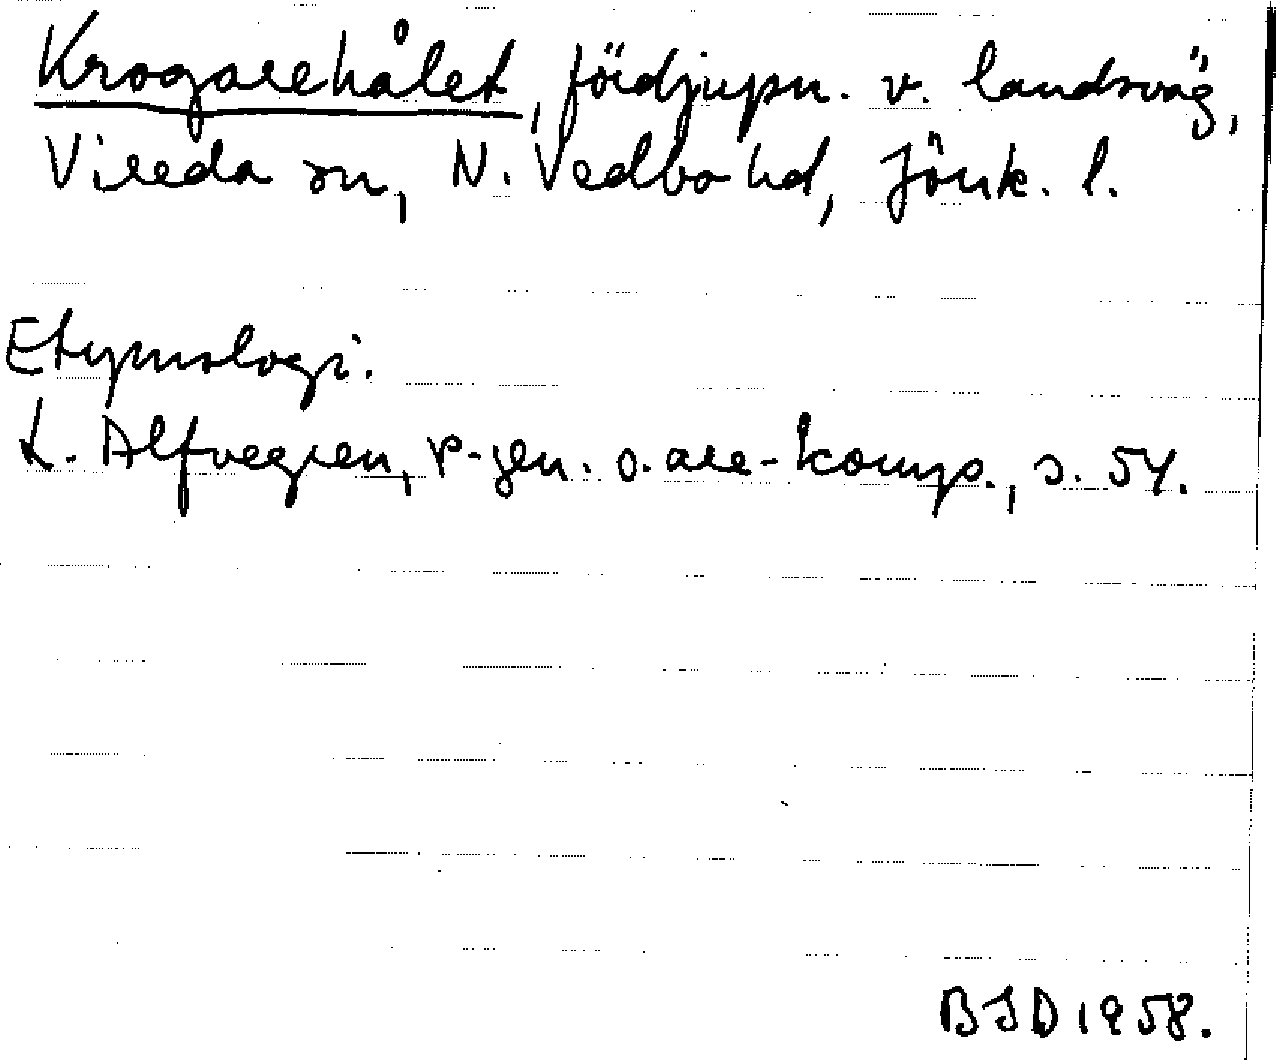 Krogarehålet, fördjupn. v. landsväg,
Vireda sn, N. Vedbo hd, Jönk. l.
Etymologi.
L. Alfvegren, r-gen. o. are-komp., s. 54.
BSD 1958.